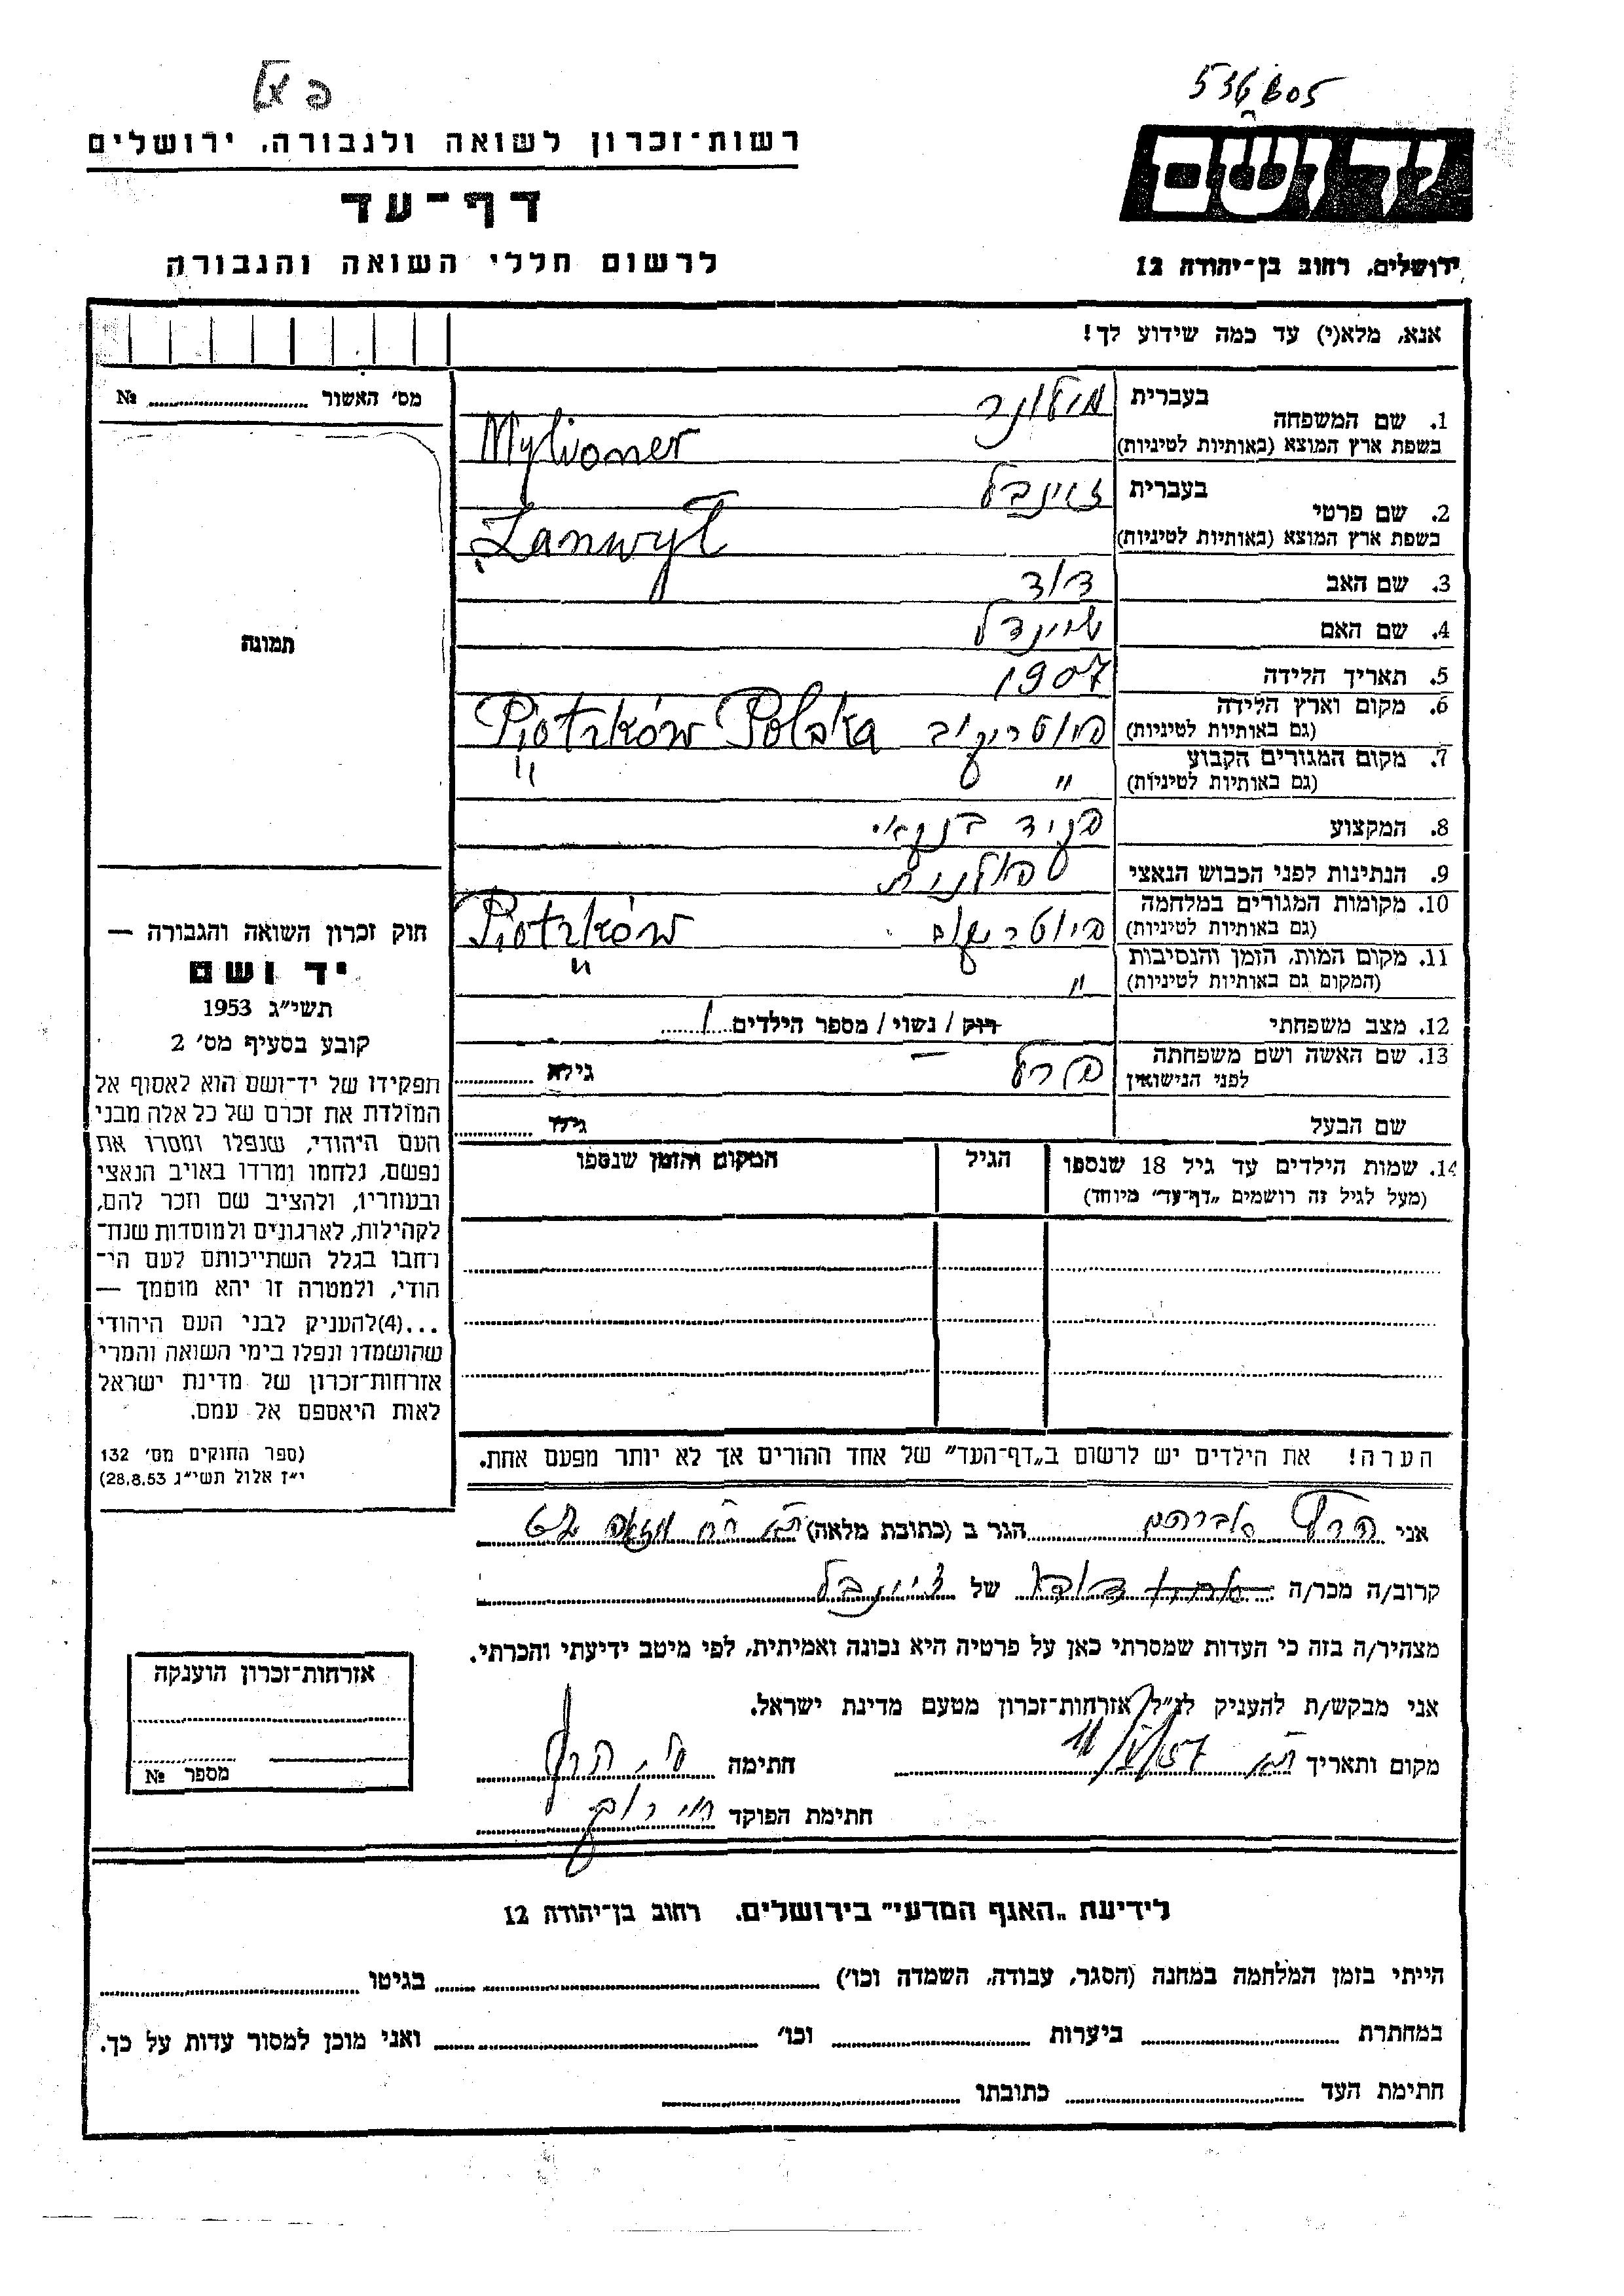 536805
רשות־זכרון לשואה ולגבורה, ירושלים
יד ושם
דף־עד
לרשום חללי השואה והגבורה
ירושלים, רחוב בן־יהודה 12
אנא, מלא(י) עד כמה שידוע לך!
מס' האשור № 
1. שם המשפחה בעברית מילונר
בשפת ארץ המוצא (באותיות לטיניות) Mylioner
2. שם פרטי בעברית זאינבל
בשפת ארץ המוצא (באותיות לטיניות) Zanwyl
3. שם האב דוד
4. שם האם שיינדל
5. תאריך הלידה 1907
6. מקום וארץ הלידה פיוטרקוב Piotrków Polska
(גם באותיות לטיניות)
7. מקום המגורים הקבוע " "
(גם באותיות לטיניות)
8. המקצוע פקיד בנקאי
9. הנתינות לפני הכבוש הנאצי פולנית
10. מקומות המגורים במלחמה פיוטרקוב Piotrków
(גם באותיות לטיניות)
11. מקום המות, הזמן והנסיבות " "
(המקום גם באותיות לטיניות)
12. מצב משפחתי רוק / נשוי / מספר הילדים 1
13. שם האשה ושם משפחתה פרל — גילה
לפני הנישואין
שם הבעל גילו
14. שמות הילדים עד גיל 18 שנספו הגיל המקום והזמן שנספו
(מעל לגיל זה רושמים "דף־עד" מיוחד)
הערה! את הילדים יש לרשום ב"דף־העד" של אחד ההורים אך לא יותר מפעם אחת.
תמונה
חוק זכרון השואה והגבורה —
יד ושם
תשי"ג 1953
קובע בסעיף מס' 2
תפקידו של יד־ושם הוא לאסוף אל
המולדת את זכרם של כל אלה מבני
העם היהודי, שנפלו ומסרו את
נפשם, נלחמו ומרדו באויב הנאצי
ובעוזריו, ולהציב שם וזכר להם,
לקהילות, לארגונים ולמוסדות שנח־
רחבו בגלל השתייכותם לעם הי־
הודי, ולמטרה זו יהא מוסמך —
...(4)להעניק לבני העם היהודי
שהושמדו ונפלו בימי השואה והמרי
אזרחות־זכרון של מדינת ישראל
לאות היאספם אל עמם.
(ספר החוקים מס' 132
י"ז אלול תשי"ג 28.8.53)
אני אברהם הגר ב (כתובת מלאה)
קרוב/ה מכר/ה של
מצהיר/ה בזה כי העדות שמסרתי כאן על פרטיה היא נכונה ואמיתית, לפי מיטב ידיעתי והכרתי.
אני מבקש/ת להעניק לנ"ל אזרחות־זכרון מטעם מדינת ישראל.
מקום ותאריך חתימה
חתימת הפוקד
אזרחות־זכרון הוענקה
מספר №
לידיעת "האגף המדעי" בירושלים, רחוב בן־יהודה 12
הייתי בזמן המלחמה במחנה (הסגר, עבודה, השמדה וכו') בגיטו
במחתרת ביערות וכו' ואני מוכן למסור עדות על כך.
חתימת העד כתובתו